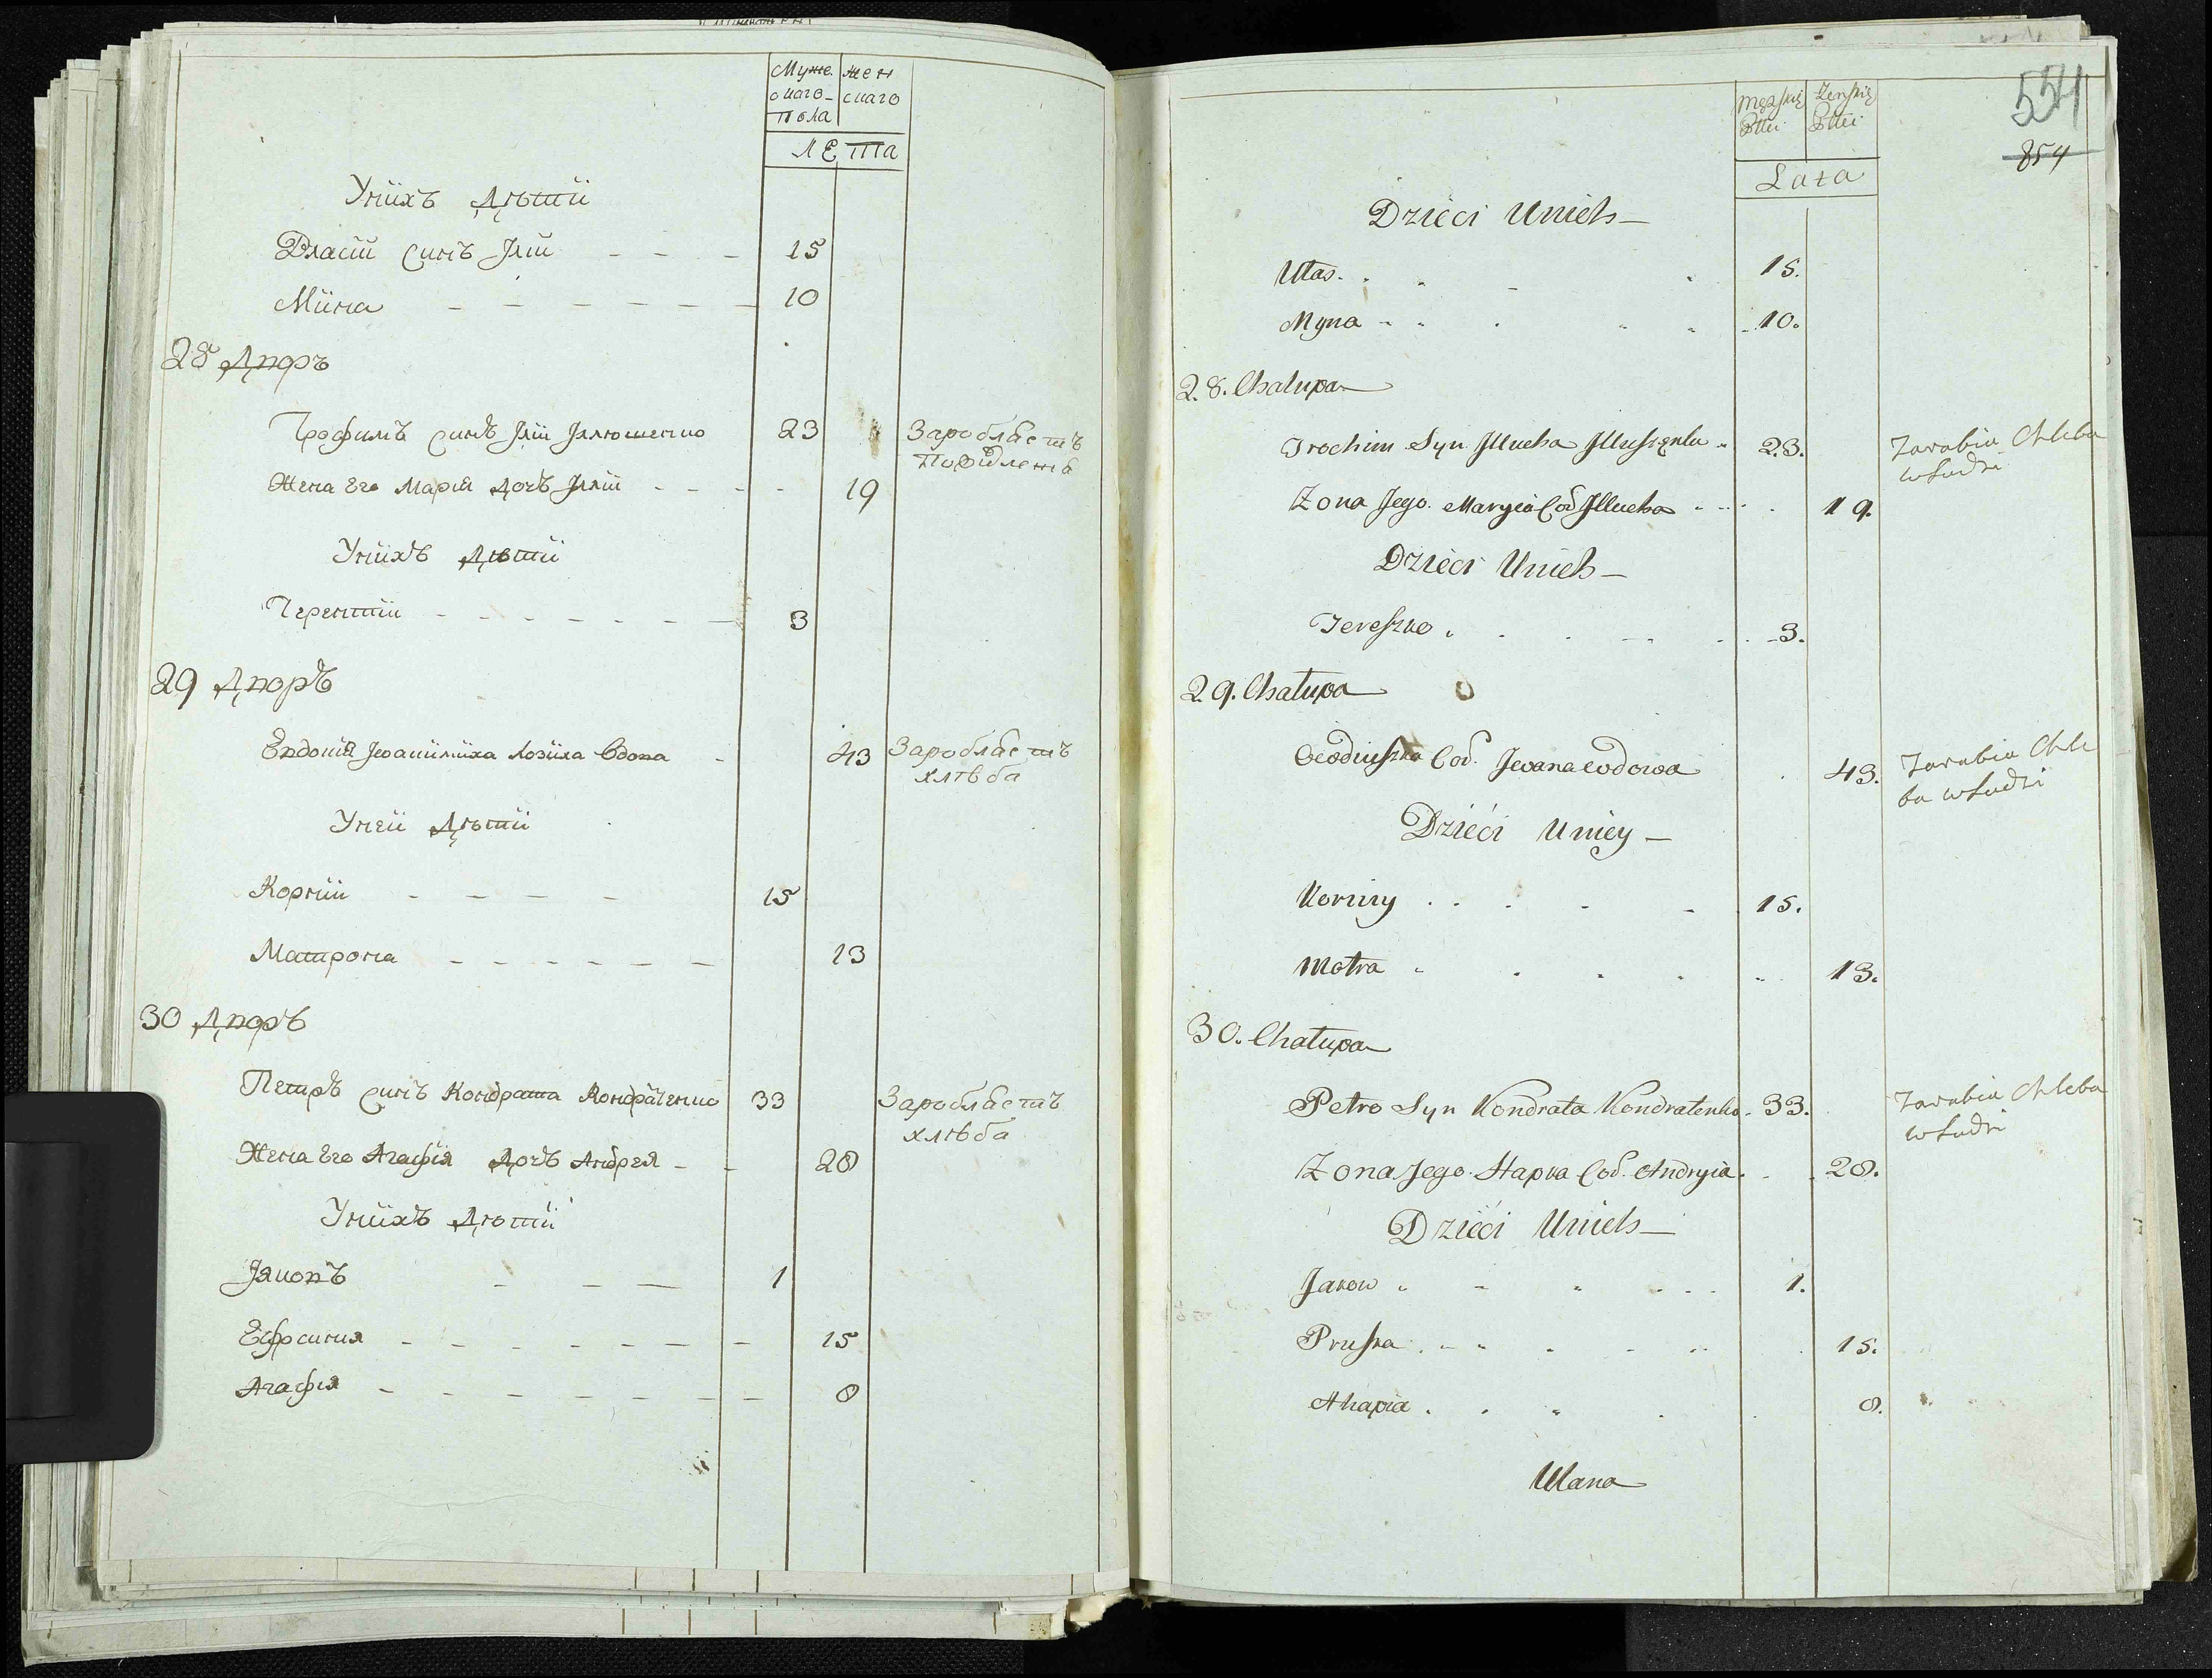 Муже. жен
скаго- скаго
пола
ЛЕта
Унихъ дѣтй
Власій синъ Іллі 15
Міна 10
28 Дворъ
Трофимъ синъ Іллі Іллюшенко 23 Зароблаетъ
Жена Его Марія дочъ Іллі 19
Унихъ дѣтй
Терентій 3
29 Дворъ
Евдокія вдова 43 Зароблаетъ
хлѣба
Уней дѣтй
Корній 15
Матрона 13
30 Дворъ
Петръ синъ Кондрата Кондратенко 33 Зароблаетъ
хлѣба
Жена Его Агафія дочъ Андрея 28
Унихъ дѣтй
Іяковъ 1
Ефросиния 15
Агафія 8
554
854
męskię Żenskię
Płći Płći
Lata
Dzieci Unich
Ułas 15.
Myna 10.
28. Chałupa
Trochim Syn Illucha 23. Zarabia Chleba
w Ludzi
Zona Jego Maryia Cod Illucha 19.
Dzieci Unich
Tereszko 3.
29. Chałupa
Cod. Iwana wdowa 43. Zarabia Chle
ba w Ludzi
Dzieci Uniey
Korniy 15.
Motra 13.
30. Chałupa
Petro Syn Kondrata Kondratenko 33. Zarabia Chleba
w Ludzi
Zona Jego Hapka Cod. Andryia 28.
Dzieci Unich
Jakow 1.
Pruska 15.
Ahapia 8.
Ulana